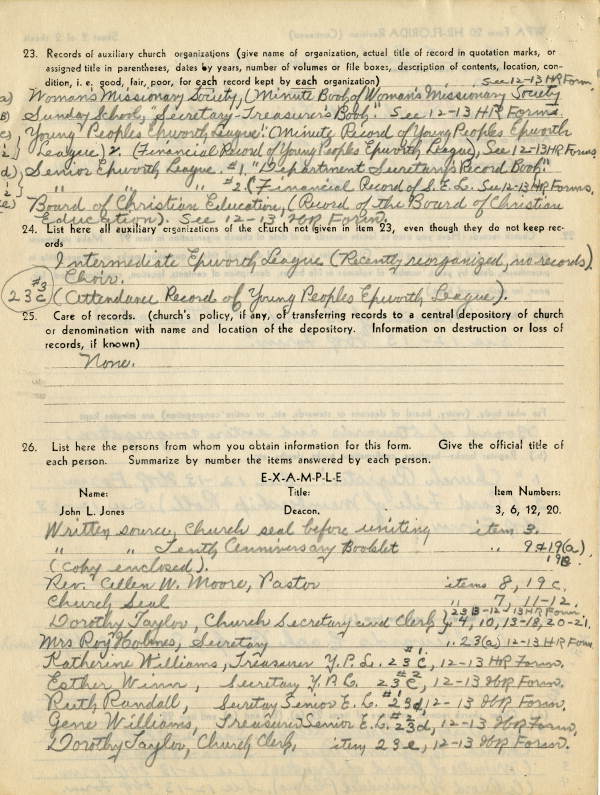 23. Records of auxiliary church organizations (give name of organization, actual title of record in quotation marks, or
assigned title in parentheses, dates by years, number of volumes or file boxes, description of contents, location, con-
dition, i. e. good, fair, poor, for each record kept by each organization) See 12-13 HR Form.
a) Woman's Missionary Society, (Minute Book of Woman's Missionary Society
B) Sunday School, "Secretary-Treasurer's Book." See 12-13 HR Forms.
c) Young Peoples Epworth League. 1. (Minute Record of Young Peoples Epworth
League) 2. (Financial Record of Young Peoples Epworth League), See 12-13 HR Forms.
d) Senior Epworth League. #1. "Department Secretary's Record Book."
" " " #2. (Financial Record of S.E.L. See 12-13 HR Forms.
e) Board of Christian Education, (Record of the Board of Christian
Education). See 12-13 HR Form.
24. List here all auxiliary organizations of the church not given in item 23, even though they do not keep rec-
ords
Intermediate Epworth League (Recently reorganized, no records).
Choir.
#3
23c (Attendance Record of Young Peoples Epworth League).
25. Care of records. (church's policy, if any, of transferring records to a central depository of church
or denomination with name and location of the depository. Information on destruction or loss of
records, if known)
None.
26. List here the persons from whom you obtain information for this form. Give the official title of
each person. Summarize by number the items answered by each person.
E-X-A-M-P-L-E
Name: Title: Item Numbers:
John L. Jones Deacon. 3, 6, 12, 20.
Written source, Church seal before uniting item 3.
" " Tenth Anniversary Booklet " 9 & 19(a)
(copy enclosed). 19B.
Rev. Allen W. Moore, Pastor items 8, 19c.
Church Seal " 7, 11-12,
23B-12-13 HR Form.
Dorothy Taylor, Church Secretary and Clerk, 4, 10, 13-18, 20-21.
Mrs Roy Holmes, Secretary " 23(a) 12-13 HR Form
Katherine Williams, Treasurer Y.P.L. 23 #1 c, 12-13 HR Form.
Esther Winn, Secretary Y.P.L. 23 #2 c, 12-13 HR Form.
Ruth Randall, Secretay Senior E.L. #1 23d, 12-13 HR Form.
Gene Williams, Treasurer Senior E.L. #2 23d, 12-13 HR Form.
Dorothy Taylor, Church Clerk, item 23e, 12-13 HR Form.